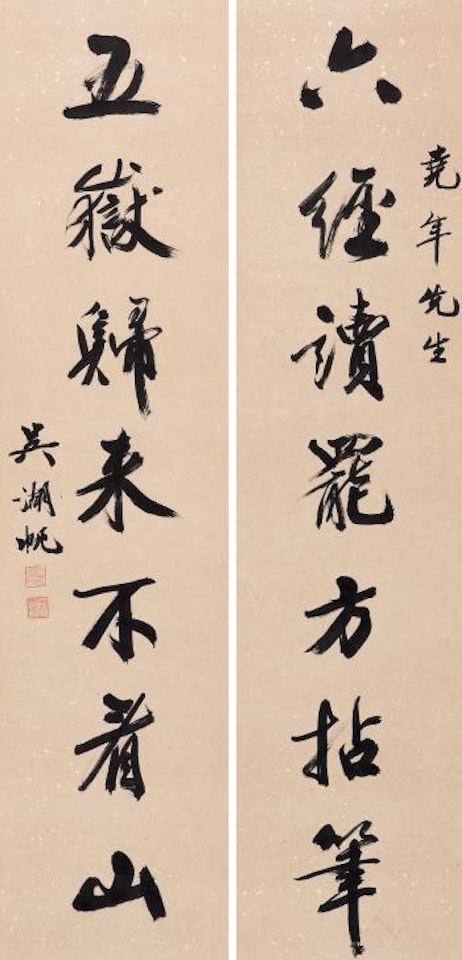 堯年先生
六經讀罷方拈筆
五嶽歸來不看山
吳湖帆